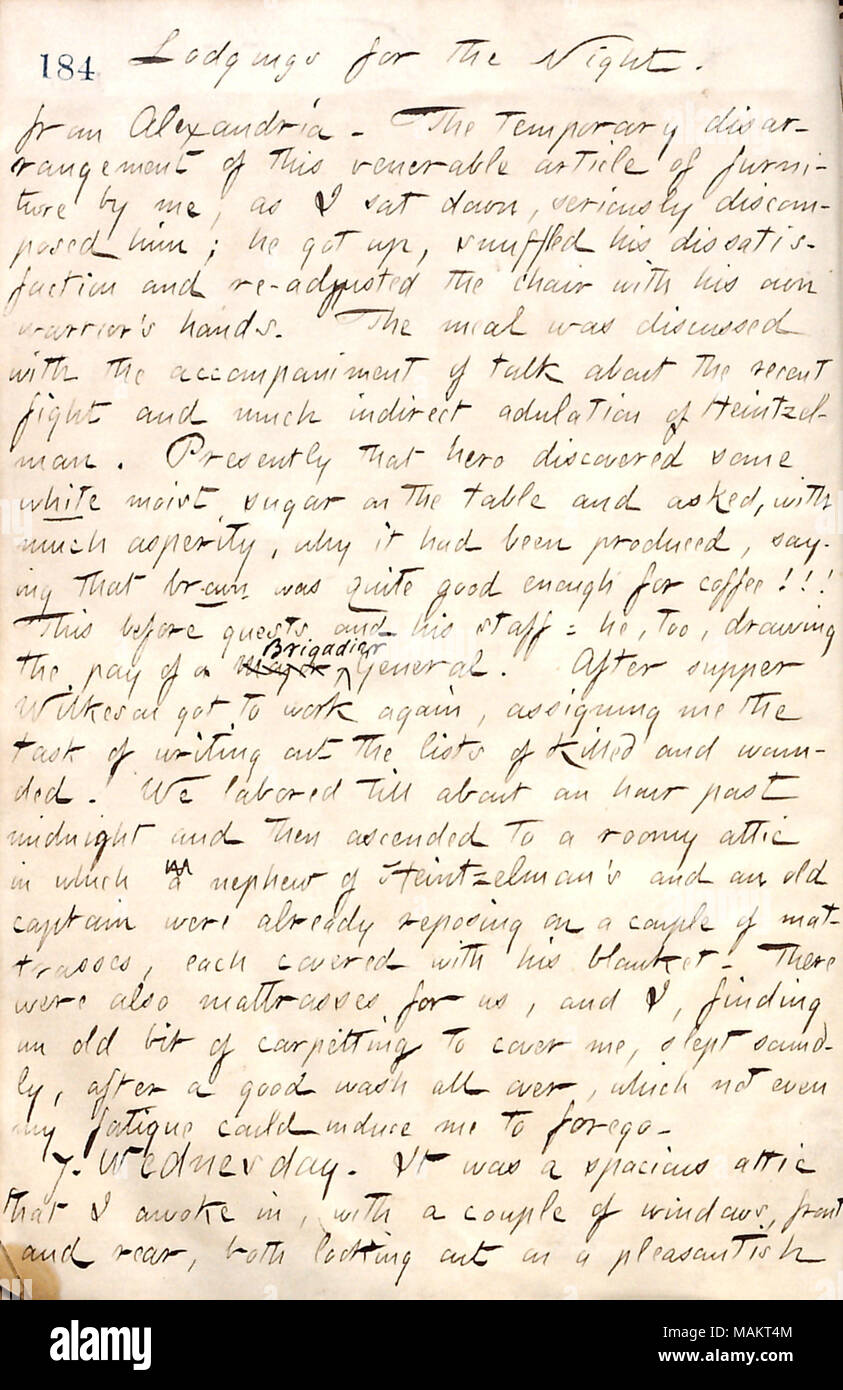 184 Lodgings for the Night.
from Alexandria. The temporary disar-
rangement of this venerable article of furni-
ture by me, as I sat down, seriously discom-
posed him; he got up, snuffled his dissatis-
faction and re-adjusted the chair with his own
warrior's hands. The meal was discussed
with the accompaniment of talk about the recent
fight and much indirect adulation of Heintzel-
man. Presently that hero discovered some
white moist sugar on the table and asked, with
much asperity, why it had been produced, say-
ing that brown was quite good enough for coffee!!!
This before guests and his staff = he, too, drawing
the pay of a Major Brigadier General. After supper
Wilkeson got to work again, assigning me the
task of writing out the lists of killed and woun-
ded. We labored till about an hour past
midnight and then ascended to a roomy attic
in which a nephew of Heintzelman's and an old
captain were already reposing on a couple of mat-
trasses, each covered with his blanket. There
were also mattrasses for us, and I, finding
an old bit of carpetting to cover me, slept sound-
ly, after a good wash all over, which not even
my fatigue could induce me to forego.
7. Wednesday. It was a spacious attic
that I awoke in, with a couple of windows, front
and rear, both looking out on a pleasantish
alamy
Image ID: MAKT4M
www.alamy.com